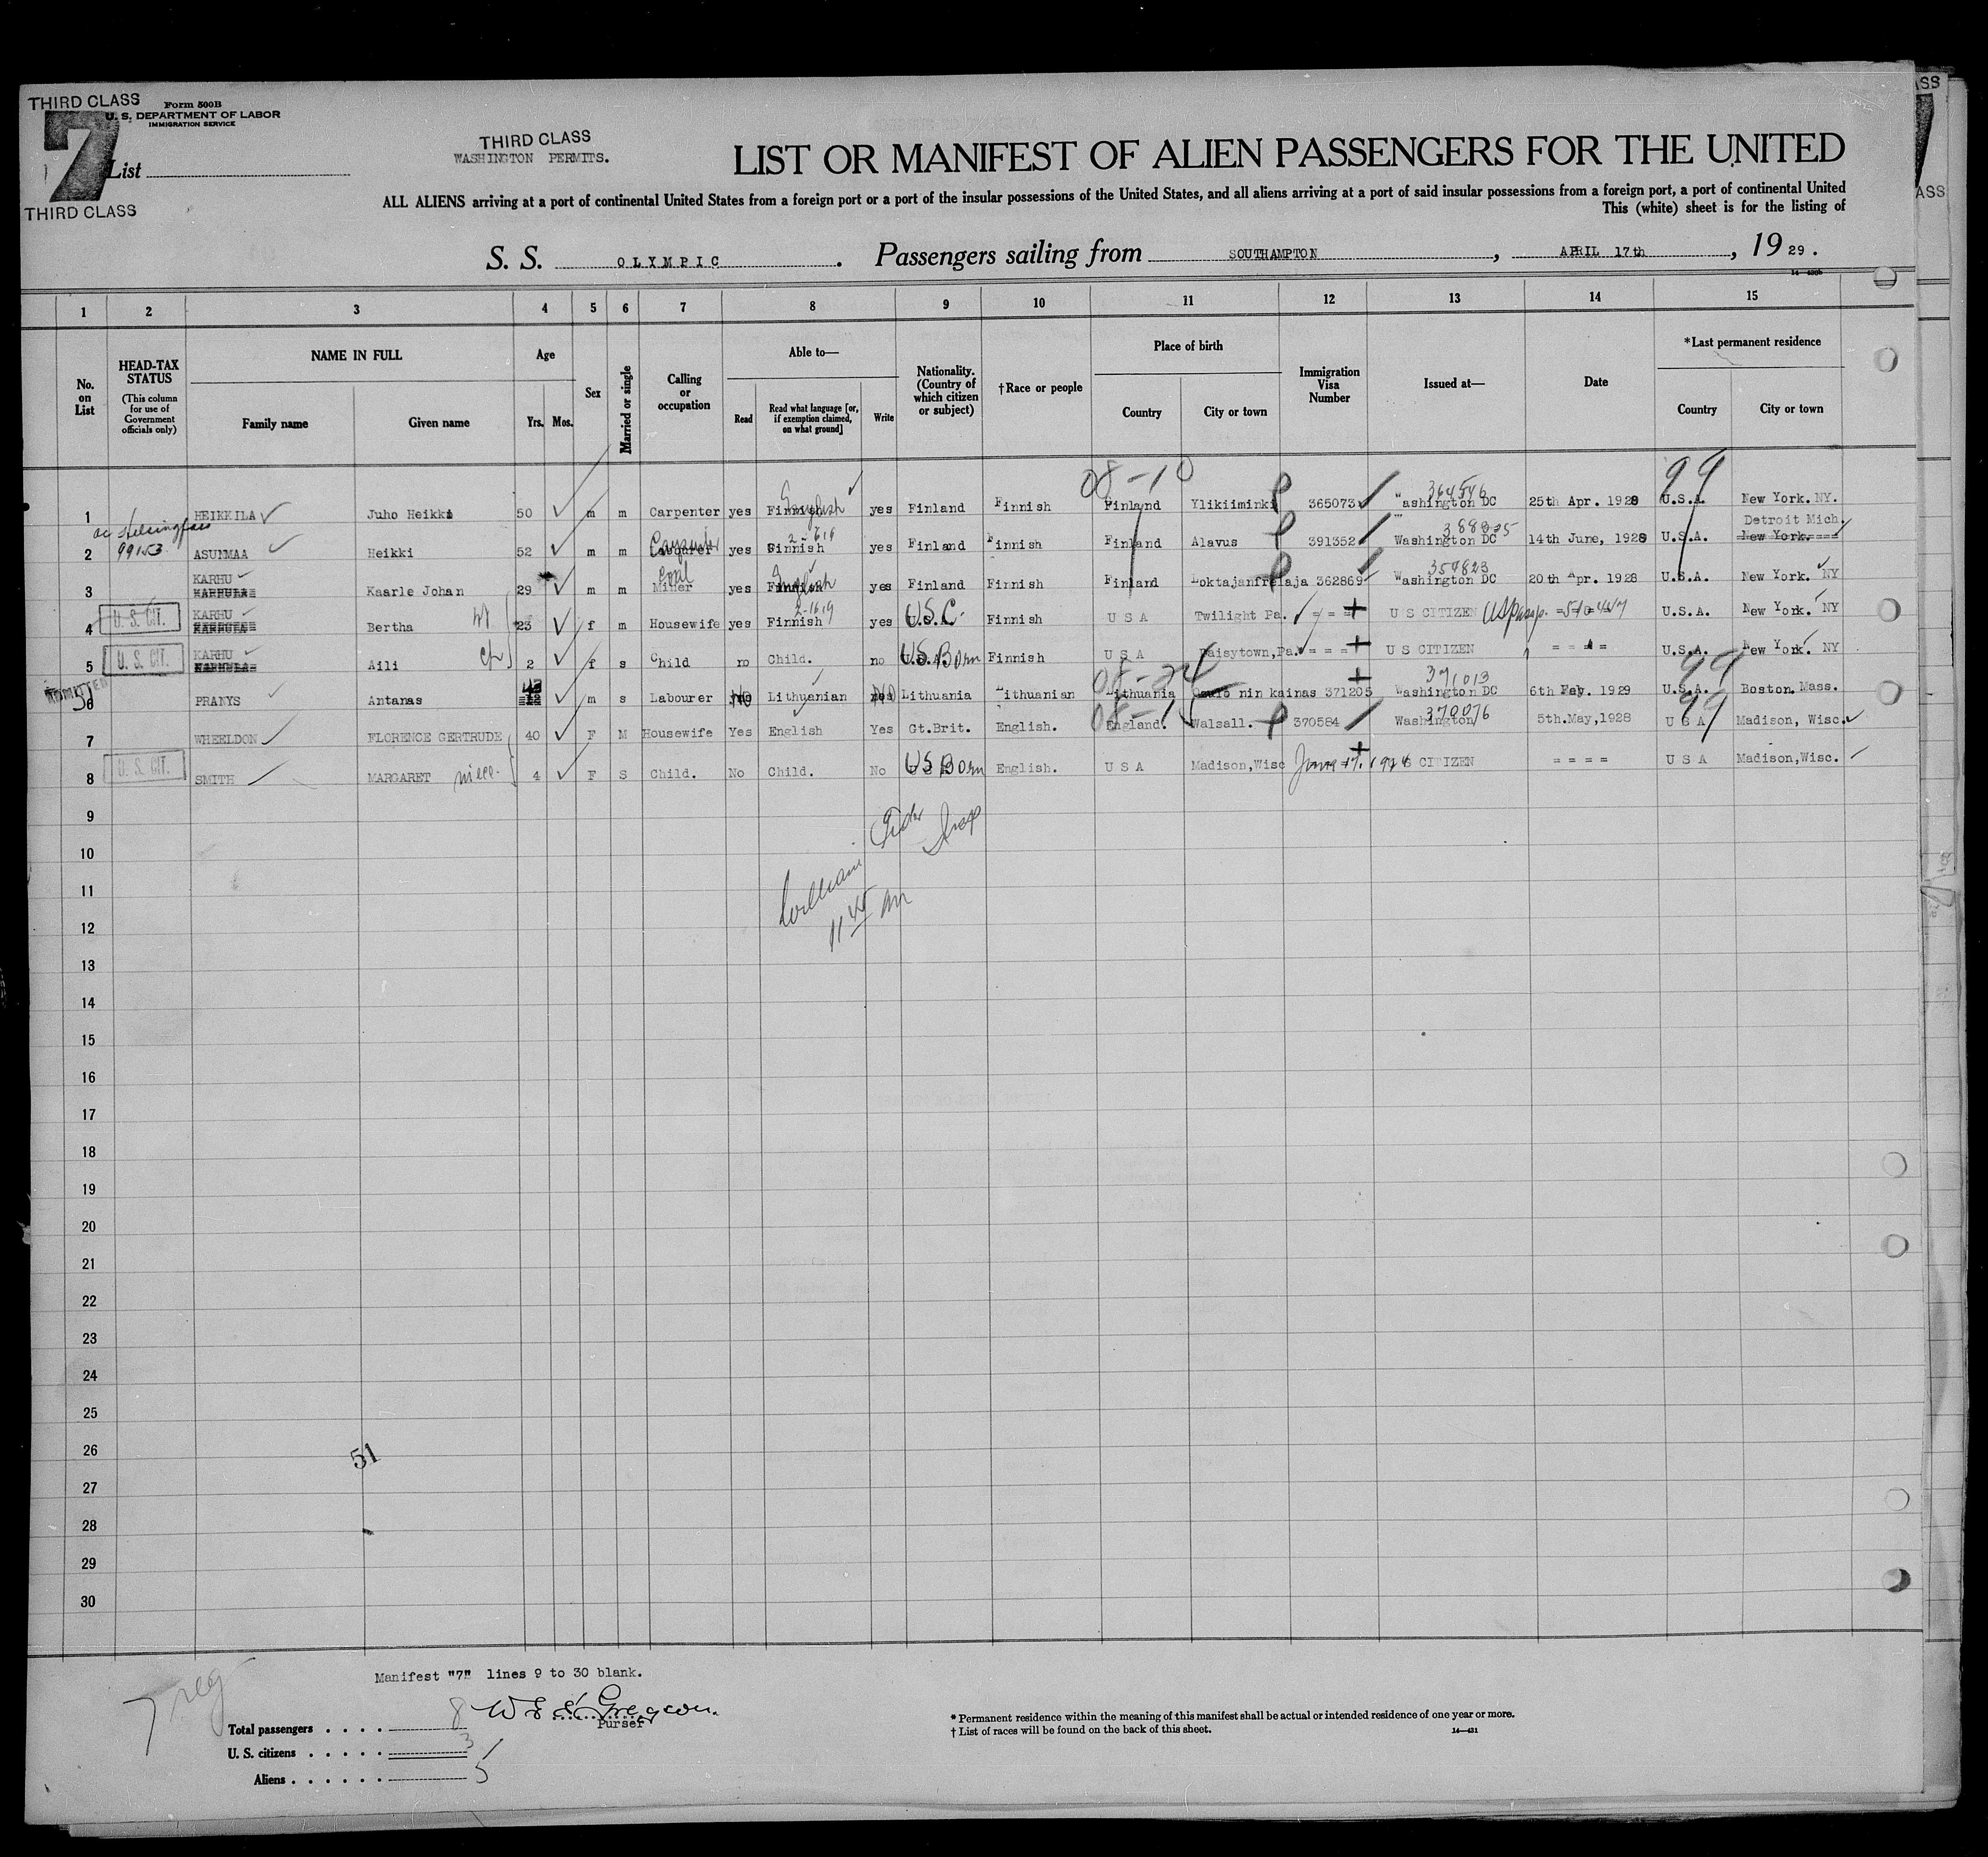 THIRD CLASS
Form 500B
U. S. DEPARTMENT OF LABOR
IMMIGRATION SERVICE
7
List
THIRD CLASS
THIRD CLASS
WASHINGTON PERMITS.
LIST OR MANIFEST OF ALIEN PASSENGERS FOR THE UNITED
ALL ALIENS arriving at a port of continental United States from a foreign port or a port of the insular possessions of the United States, and all aliens arriving at a port of said insular possessions from a foreign port, a port of continental United
This (white) sheet is for the listing of
S. S. OLYMPIC. Passengers sailing from SOUTHAMPTON, APRIL 17th, 1929.
1 2 3 4 5 6 7 8 9 10 11 12 13 14 15
No. on List
HEAD-TAX STATUS (This column for use of Government officials only)
NAME IN FULL
Family name Given name
Age
Yrs. Mos.
Sex
Married or single
Calling or occupation
Able to—
Read Read what language [or, if exemption claimed, on what ground] Write
Nationality. (Country of which citizen or subject)
†Race or people
Place of birth
Country City or town
Immigration Visa Number
Issued at—
Date
*Last permanent residence
Country City or town
08-10 99
364546
1 HEIKKILA Juho Heikki 50 m m Carpenter yes Finnish English yes Finland Finnish Finland Ylikiiminki 365073 Washington DC 25th Apr. 1928 U.S.A. New York. NY.
99153 Carpenter Detroit Mich.
2 ASUNMAA Heikki 52 m m Labourer yes Finnish yes Finland Finnish Finland Alavus 391352 Washington DC 14th June, 1928 U.S.A. New York.
KARHU Coal English 359823
3 KARHULA Kaarle Johan 29 m m Miner yes Finnish yes Finland Finnish Finland 362869 Washington DC 20th Apr. 1928 U.S.A. New York. NY
U. S. CIT. KARHU
4 KARHULA Bertha 23 f m Housewife yes Finnish yes U.S.C. Finnish U S A Twilight Pa. = = = U S CITIZEN U.S.A. New York. NY
U. S. CIT. KARHU
5 KARHULA Aili 2 f s Child no Child. no U.S. Born Finnish U S A Daisytown,Pa. = = = U S CITIZEN = = = = U.S.A. New York. NY
ADMITTED 43 08-24 371013 99
6 PRANYS Antanas m s Labourer No Lithuanian No Lithuania Lithuanian Lithuania 371205 Washington DC 6th Feb. 1929 U.S.A. Boston. Mass.
08-15 370076 99
7 WHEELDON FLORENCE GERTRUDE 40 F M Housewife Yes English Yes Gt.Brit. English. England. Walsall. 370584 Washington 5th.May,1928 U S A Madison, Wisc.
U. S. CIT.
8 SMITH MARGARET niece 4 F S Child. No Child. No U S Born English. U S A Madison,Wisc CITIZEN = = = = U S A Madison,Wisc.
9
10
11
William
12
11 45 AM
13
14
15
16
17
18
19
20
21
22
23
24
25
26
51
27
28
29
30
Manifest "7" lines 9 to 30 blank.
Purser
Total passengers . . . . 8
U. S. citizens . . . . . 3
Aliens . . . . . . 5
* Permanent residence within the meaning of this manifest shall be actual or intended residence of one year or more.
† List of races will be found on the back of this sheet.
14—431